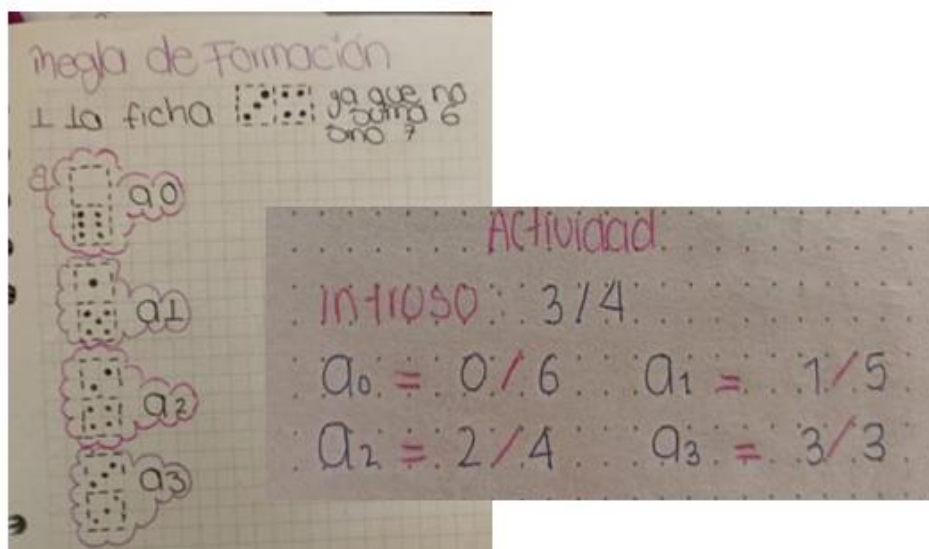 Regla de Formación
1 La ficha ya que no
suma 6
sino 7
a0
a1
a2
a3
Actividad
intruso: 3/4
a₀ = 0/6 a₁ = 1/5
a₂ = 2/4 a₃ = 3/3